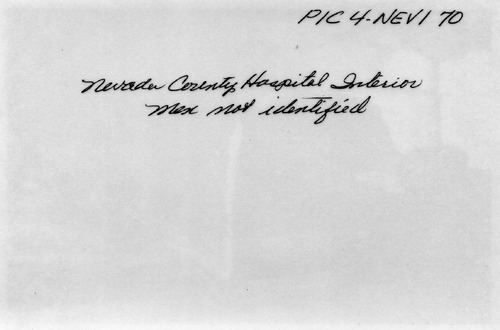 PIC 4-NEV1 70
Nevada County Hospital Interior
Men not identified